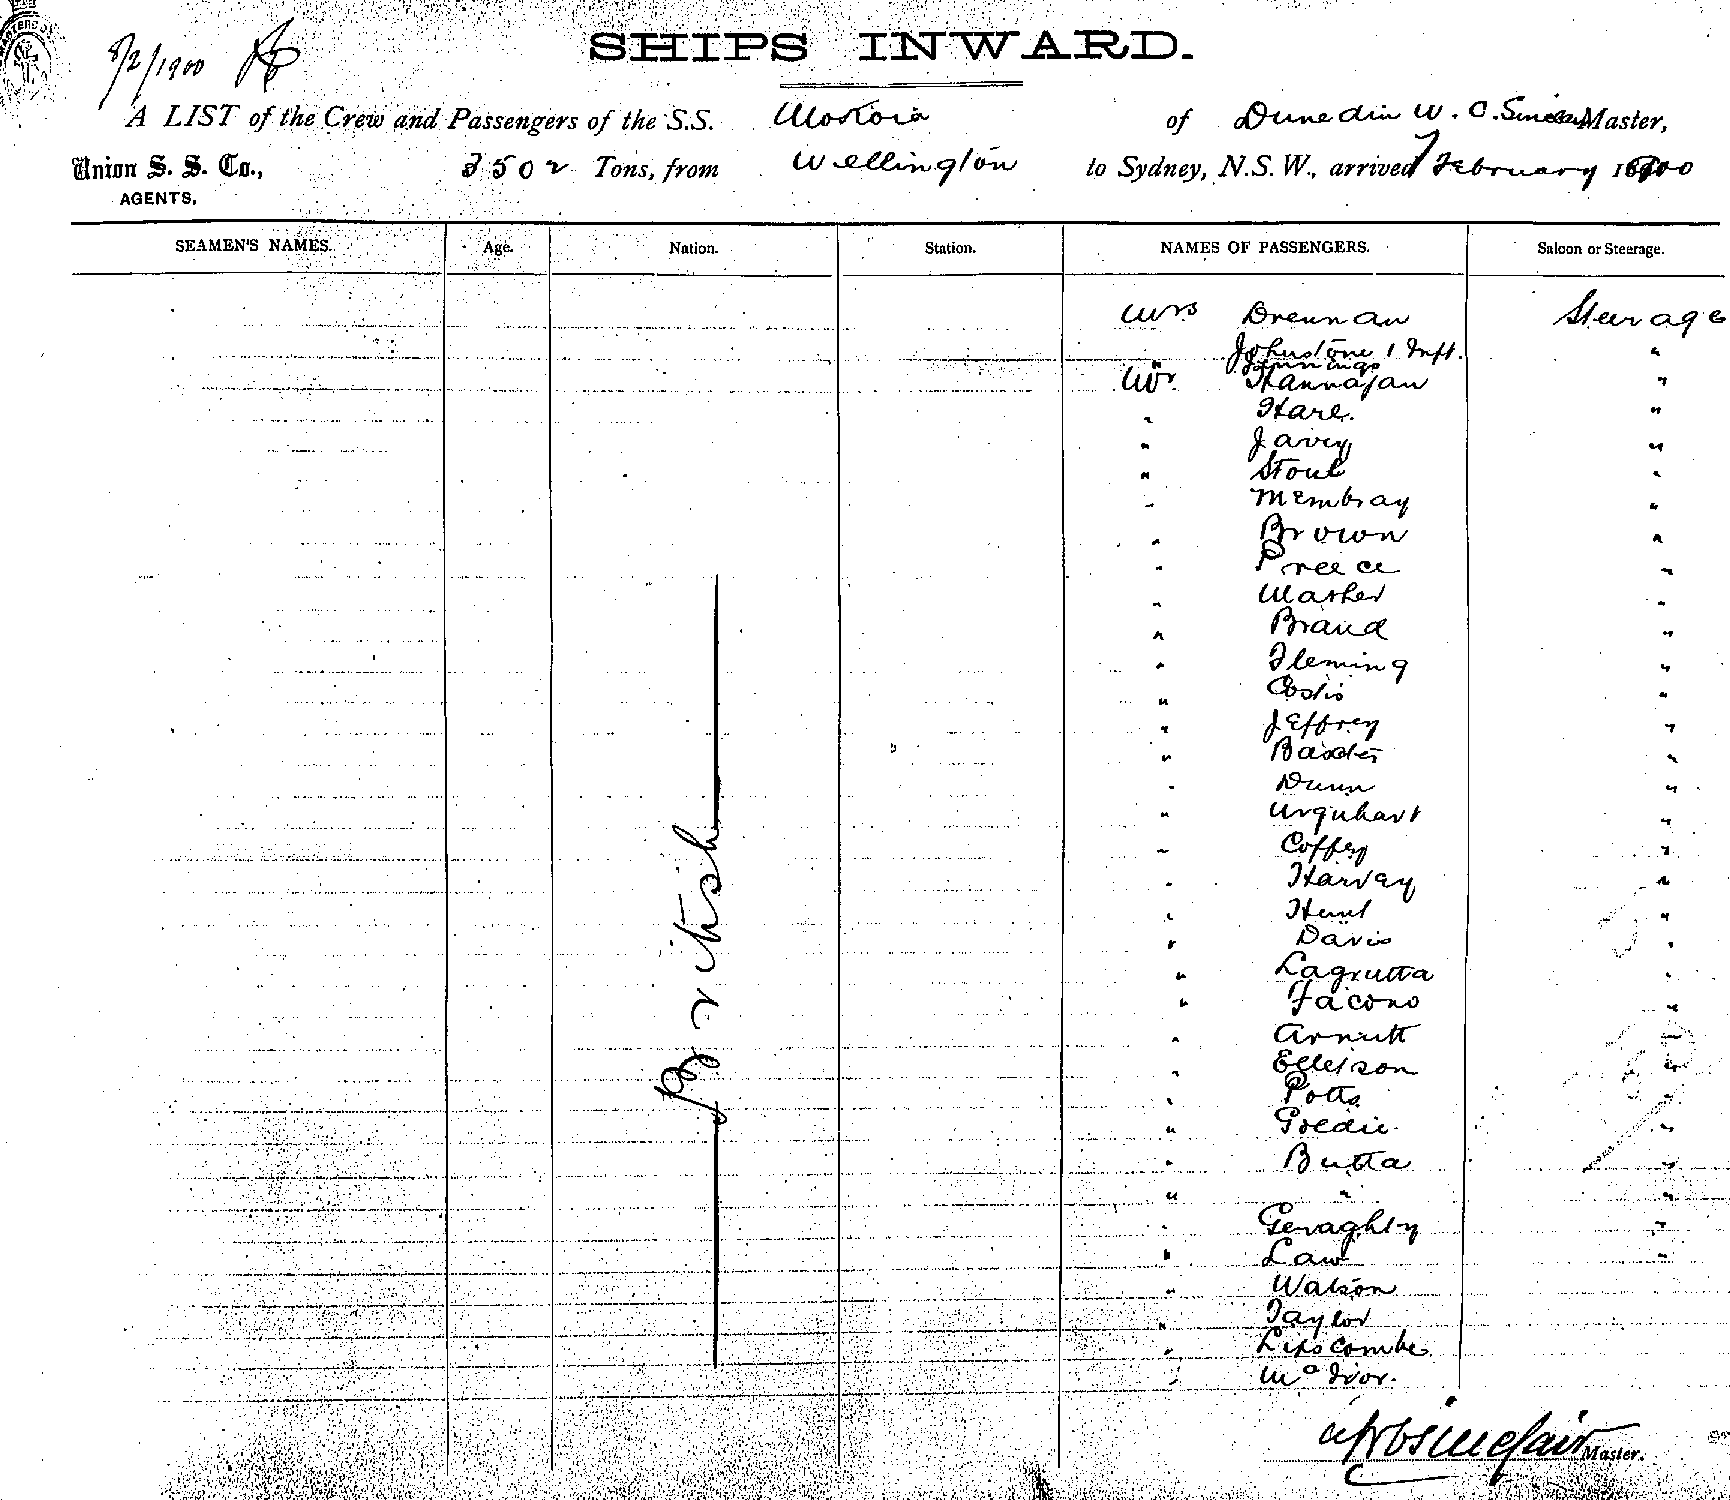 8/2/1900
SHIPS INWARD.
A LIST of the Crew and Passengers of the S.S. Mokoia of Dunedin W. C. Sinclair Master,
Union S. S. Co., 3502 Tons, from Wellington to Sydney, N.S.W., arrived 7 February 1900
AGENTS,
SEAMEN'S NAMES. Age. Nation. Station. NAMES OF PASSENGERS. Saloon or Steerage.
Mrs Drennan Steerage
Johnstone 1 Inft. "
Jennings
Mr Hannafan "
" Hare. "
" Javey "
" Stout "
" Membray "
" Brown "
" Preece "
" Masher "
" Brand "
" Fleming "
" Costis "
" Jeffrey "
" Baxter "
" Dunn "
" Urquhart "
" Coffey "
" Harvey "
" Hunt "
" Davis "
" Lagrutta "
" Iacono "
" Arnutt "
" Elletson "
" Potts "
" Goedie "
" Butta "
" " "
" Geraghty "
" Law "
" Watson
" Taylor
" Lipscombe
" McIvor.
British
W C Sinclair Master.